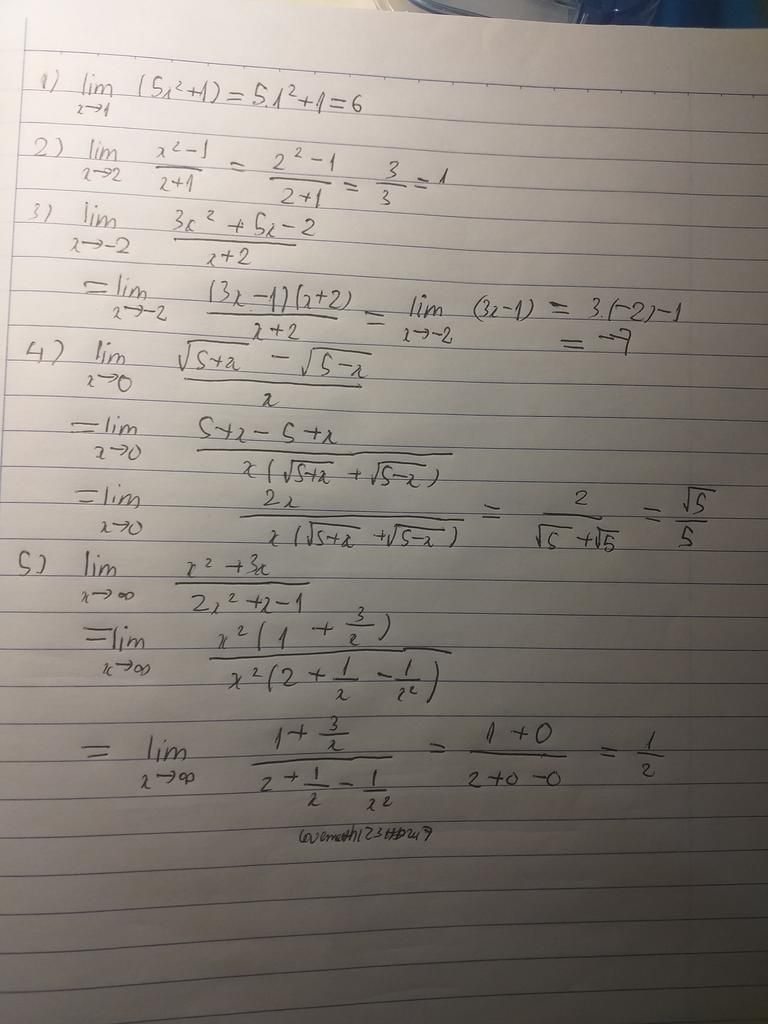 1) lim x→1 (5x²+1) = 5.1²+1 = 6
2) lim x→2 (x²-1)/(x+1) = (2²-1)/(2+1) = 3/3 = 1
3) lim x→-2 (3x²+5x-2)/(x+2)
= lim x→-2 (3x-1)(x+2)/(x+2) = lim x→-2 (3x-1) = 3.(-2)-1
= -7
4) lim x→0 (√(5+x) - √(5-x))/x
= lim x→0 (5+x-5+x)/(x(√(5+x) + √(5-x)))
= lim x→0 2x/(x(√(5+x) + √(5-x))) = 2/(√5+√5) = √5/5
5) lim x→∞ (x²+3x)/(2x²+x-1)
= lim x→∞ x²(1 + 3/x)/(x²(2 + 1/x - 1/x²))
= lim x→∞ (1 + 3/x)/(2 + 1/x - 1/x²) = (1+0)/(2+0-0) = 1/2